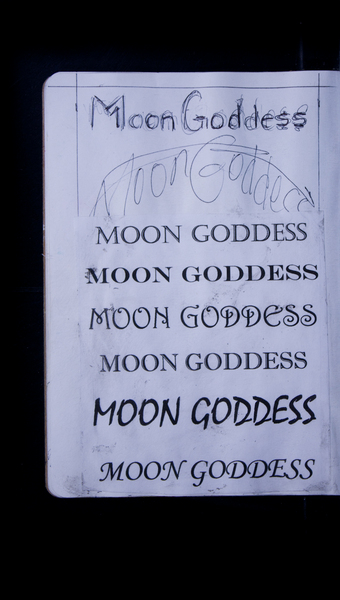 Moon Goddess
Moon Goddess
MOON GODDESS
MOON GODDESS
MOON GODDESS
MOON GODDESS
MOON GODDESS
MOON GODDESS